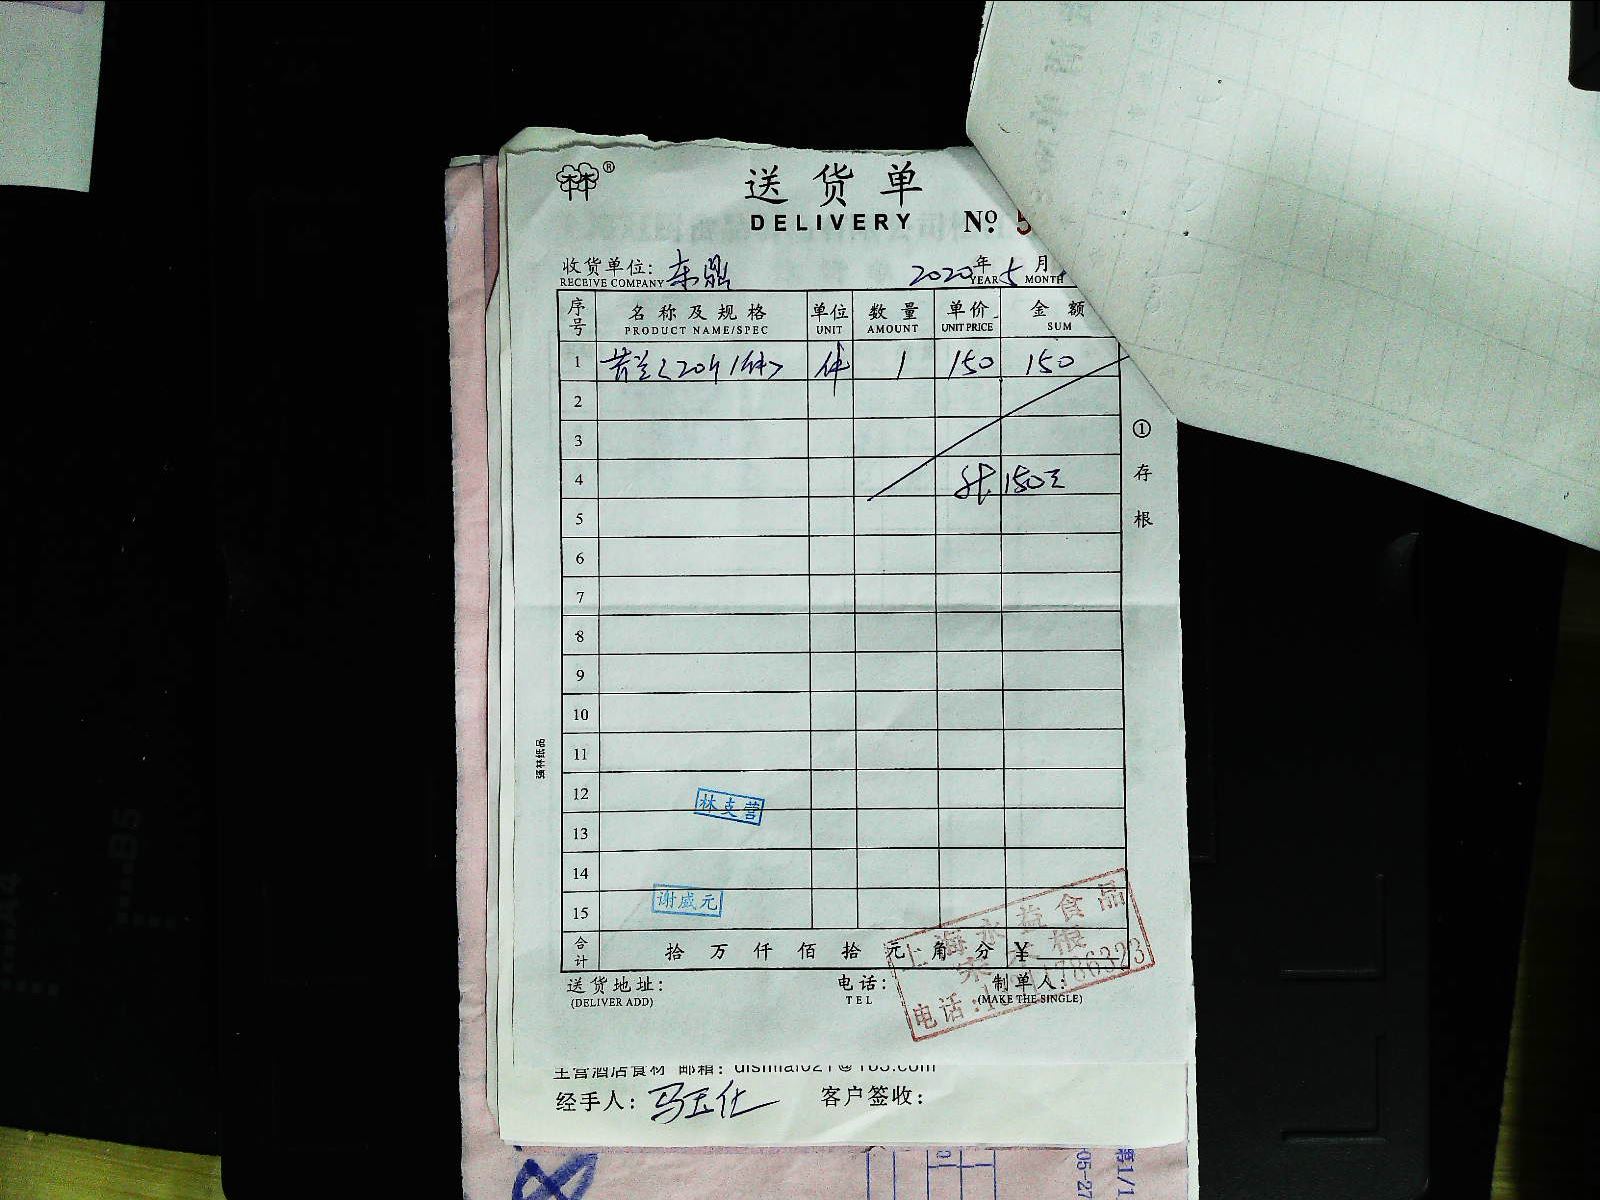 林林®
送货单
DELIVERY № 5
收货单位: 东鼎 2020年5月
RECEIVE COMPANY YEAR MONTH
序号 名称及规格 单位 数量 单价 金额
PRODUCT NAME/SPEC UNIT AMOUNT UNIT PRICE SUM
1 件 1 150 150
2
3
4 150元
5
6
7
8
9
10
11
12
13
14
15
①存根
强林纸品
林支营
谢盛元
合计 拾万仟佰拾元角分 ¥
送货地址: 电话: 制单人:
(DELIVER ADD) TEL (MAKE THE SINGLE)
上海永益食品
电话:
主营酒店食材 邮箱:
经手人: 马玉仕 客户签收:
B5
A4
05-27
第1/1